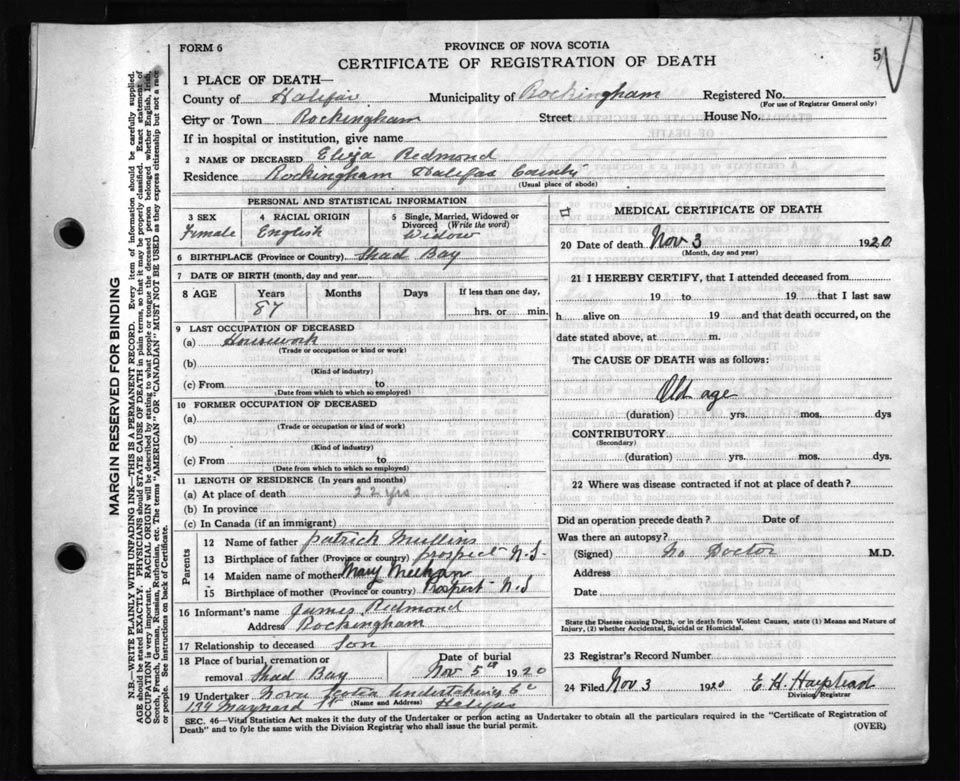 FORM 6
PROVINCE OF NOVA SCOTIA
CERTIFICATE OF REGISTRATION OF DEATH
5
1 PLACE OF DEATH—
County of Halifax Municipality of Rockingham Registered No.
(For use of Registrar General only)
City or Town Rockingham Street House No.
If in hospital or institution, give name
2 NAME OF DECEASED Eliza Redmond
Residence Rockingham Halifax County
(Usual place of abode)
PERSONAL AND STATISTICAL INFORMATION
3 SEX 4 RACIAL ORIGIN 5 Single, Married, Widowed or Divorced (Write the word)
Female English Widow
6 BIRTHPLACE (Province or Country) Shad Bay
7 DATE OF BIRTH (month, day and year)
8 AGE Years Months Days If less than one day,
87 hrs. or min.
9 LAST OCCUPATION OF DECEASED
(a) Housework
(Trade or occupation or kind or work)
(b)
(Kind of industry)
(c) From to
(Date from which to which so employed)
10 FORMER OCCUPATION OF DECEASED
(a)
(Trade or occupation or kind of work)
(b)
(Kind of industry)
(c) From to
(Date from which to which so employed)
11 LENGTH OF RESIDENCE (In years and months)
(a) At place of death 22 yrs
(b) In province
(c) In Canada (if an immigrant)
Parents
12 Name of father Patrick Mullins
13 Birthplace of father (Province or country) prospect N.S.
14 Maiden name of mother Mary Meehan
15 Birthplace of mother (Province or country) Prospect N.S
16 Informant's name James Redmond
Address Rockingham
17 Relationship to deceased Son
18 Place of burial, cremation or removal Shad Bay Date of burial Nov 5th 1920
19 Undertaker Nova Scotia Undertaking Co
134 Maynard St (Name and Address) Halifax
MEDICAL CERTIFICATE OF DEATH
20 Date of death Nov 3 1920
(Month, day and year)
21 I HEREBY CERTIFY, that I attended deceased from
19 to 19 that I last saw
h alive on 19 and that death occurred, on the
date stated above, at m.
The CAUSE OF DEATH was as follows:
Old age
(duration) yrs. mos. dys
CONTRIBUTORY
(Secondary)
(duration) yrs. mos. dys.
22 Where was disease contracted if not at place of death?
Did an operation precede death? Date of
Was there an autopsy?
(Signed) No Doctor M.D.
Address
Date
State the Disease causing Death, or in death from Violent Causes, state (1) Means and Nature of
Injury, (2) whether Accidental, Suicidal or Homicidal.
23 Registrar's Record Number
24 Filed Nov 3 1920 E. H.
Division Registrar
SEC. 46—Vital Statistics Act makes it the duty of the Undertaker or person acting as Undertaker to obtain all the particulars required in the "Certificate of Registration of
Death" and to fyle the same with the Division Registrar who shall issue the burial permit.
(OVER)
MARGIN RESERVED FOR BINDING
N.B.—WRITE PLAINLY WITH UNFADING INK—THIS IS A PERMANENT RECORD. Every item of information should be carefully supplied.
AGE should be stated EXACTLY. PHYSICIANS should STATE CAUSE OF DEATH in plain terms, so that it may be properly classified. Exact statement of
OCCUPATION is very important. RACIAL ORIGIN will be described by stating to what people or tongue the deceased person belonged whether English, Irish,
Scotch, French, German, Russian, Ruthenian, etc. The terms "AMERICAN" OR "CANADIAN" MUST NOT BE USED as they express citizenship but not a race
or people. See instructions on back of Certificate.